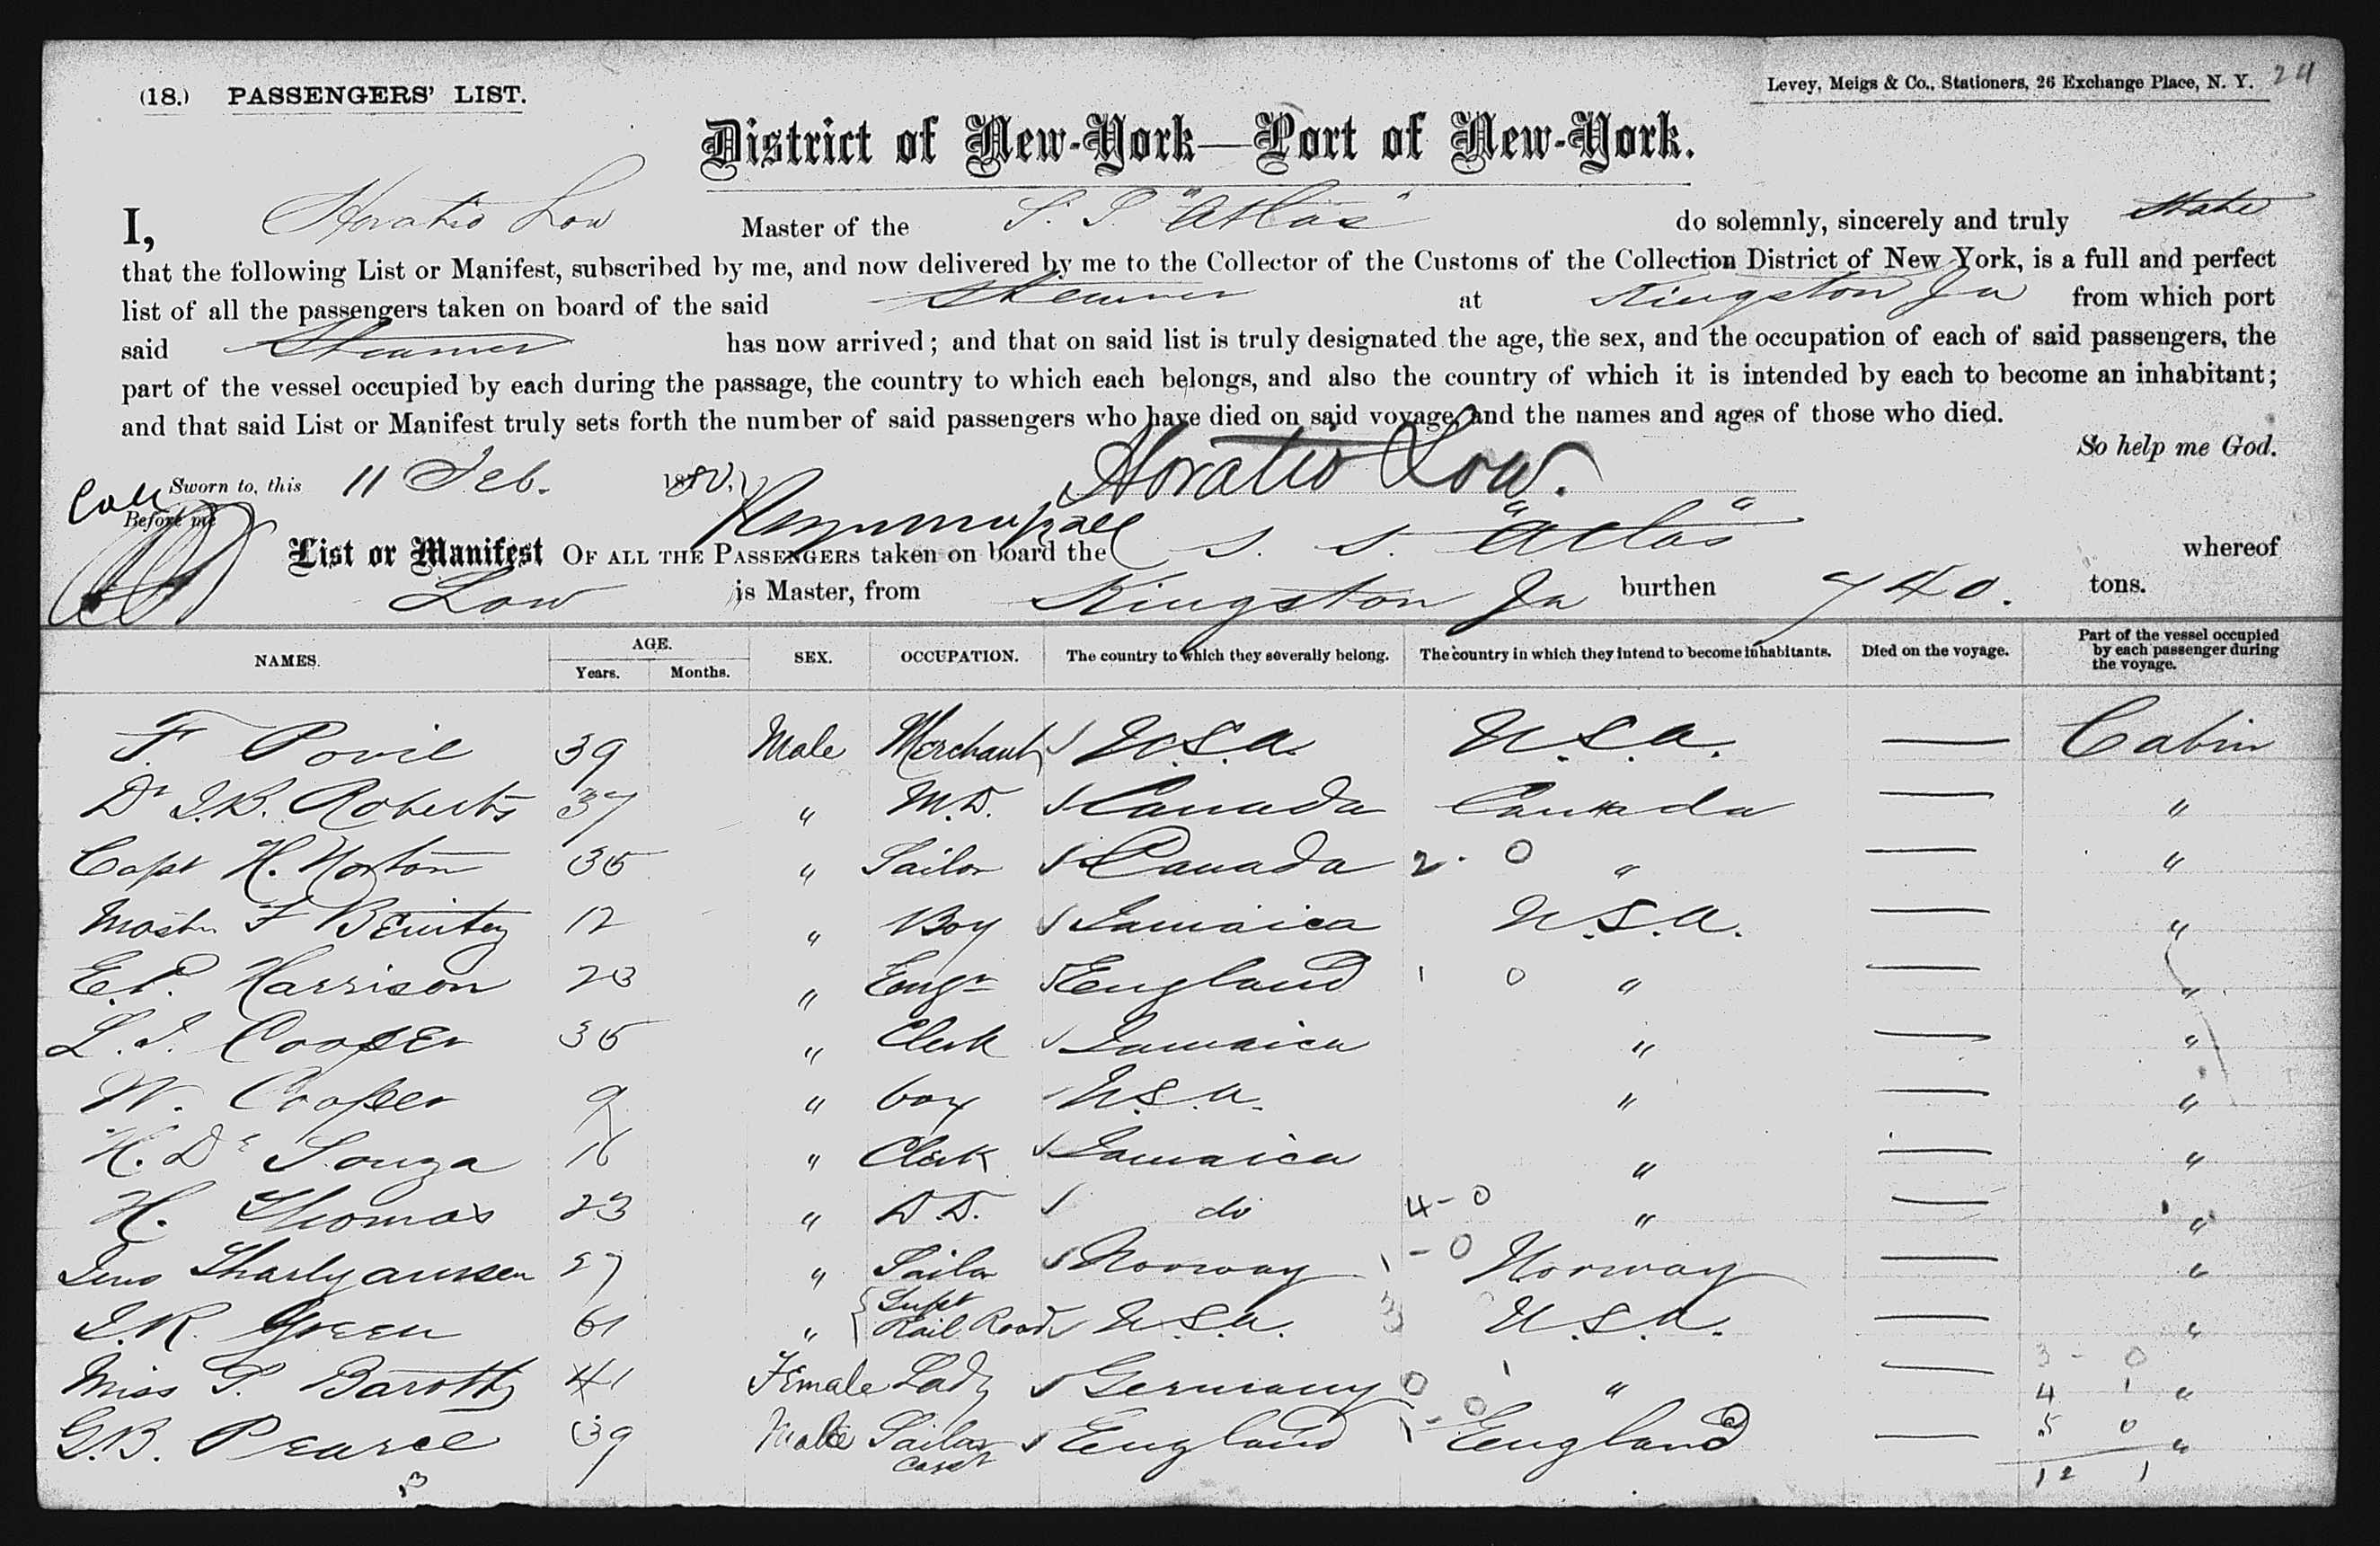 (18.) PASSENGERS' LIST.
Levey, Meigs & Co., Stationers, 26 Exchange Place, N. Y. 24
District of New-York—Port of New-York.
I, Horatio Low Master of the S.S. "Atlas" do solemnly, sincerely and truly State
that the following List or Manifest, subscribed by me, and now delivered by me to the Collector of the Customs of the Collection District of New York, is a full and perfect
list of all the passengers taken on board of the said Steamer at Kingston Ja from which port
said Steamer has now arrived; and that on said list is truly designated the age, the sex, and the occupation of each of said passengers, the
part of the vessel occupied by each during the passage, the country to which each belongs, and also the country of which it is intended by each to become an inhabitant;
and that said List or Manifest truly sets forth the number of said passengers who have died on said voyage, and the names and ages of those who died.
So help me God.
Sworn to, this 11 Feb. 1880. Horatio Low.
Before me
List or Manifest OF ALL THE PASSENGERS taken on board the S. S. "Atlas" whereof
Low is Master, from Kingston Ja burthen 740. tons.
NAMES. AGE. Years. Months. SEX. OCCUPATION. The country to which they severally belong. The country in which they intend to become inhabitants. Died on the voyage. Part of the vessel occupied by each passenger during the voyage.
F. Povie 39 Male Merchant U.S.A. U.S.A. — Cabin
Dr J.B. Roberts 37 " M.D. Canada Canada — "
Capt H. Norton 35 " Sailor Canada 2. 0 " — "
Mastr F Benitez 12 " Boy Jamaica U.S.A. — "
E.P. Harrison 23 " Engr England 1 0 " — "
L.J. Cooper 35 " Clerk Jamaica " — "
W. Cooper 9 " boy U.S.A. " — "
H. De Souza 16 " Clerk Jamaica " — "
H. Thomas 23 " D.D. do 4-0 " — "
27 " Sailor Norway 1-0 Norway — "
J.R. Green 61 " Supt Rail Road U.S.A. 3 U.S.A. — "
Miss P. 41 Female Lady Germany 0 1 " — "
G.B. Pearce 39 Male Sailor England 1-0 England — "
3 - 0
4 1
5 0
12 1